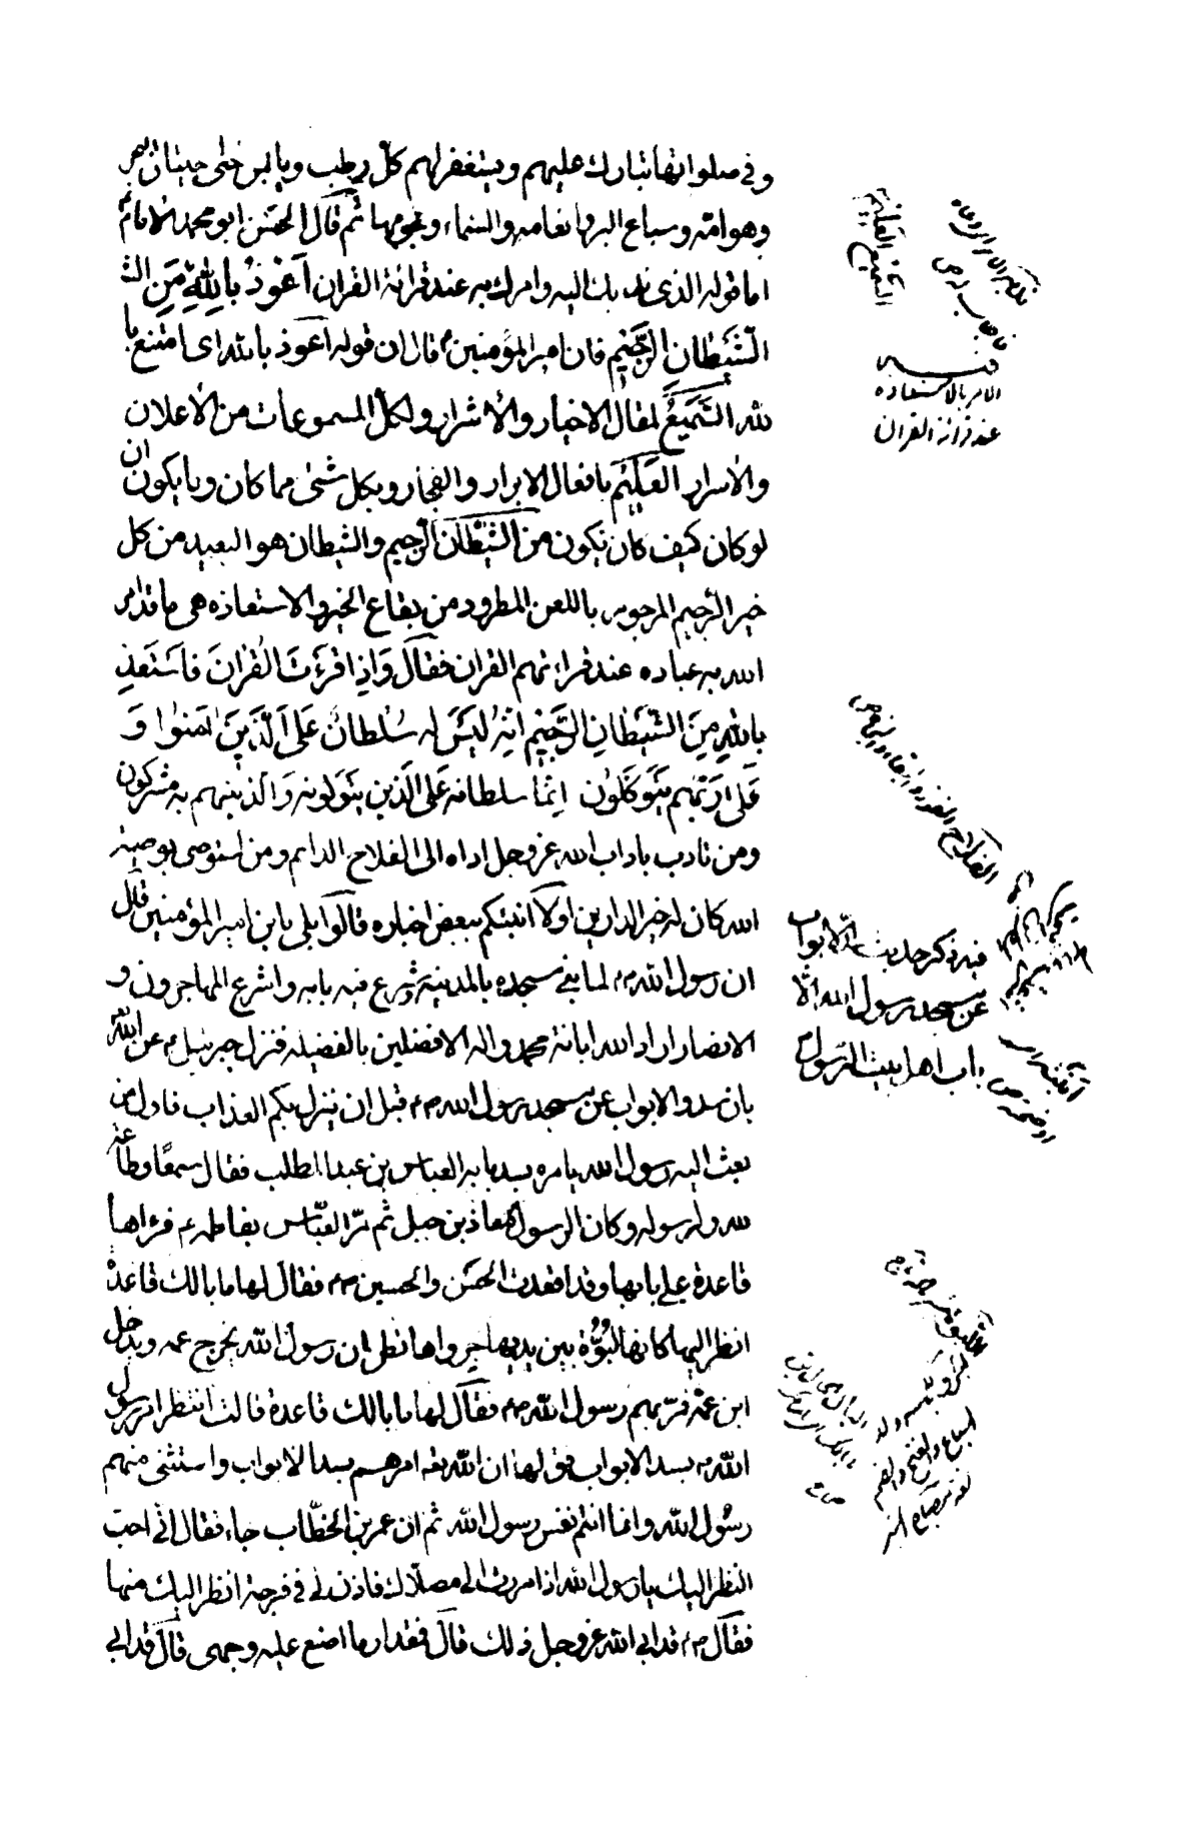 وفي صلواتها تبارك عليهم ويستغفر لهم كل رطب ويابس حتى حيتان البحر
وهوامه وسباع البر وانعامه والسماء ونجومها ثم قال الحسن ابو محمد الامام
اما قوله الذي ندبك اليه وامرك به عند قرائة القران اَعُوذُ بِاللهِ مِنَ
الشَّيْطانِ الرَّجيمِ فان امير المؤمنين قال ان قوله اعوذ بالله اى امتنع با
لله السَّميعِ لمقال الاخيار والاشرار ولكل المسموعات من الاعلان
والاسرار العَليمِ بافعال الابرار والفجار وبكل شئ مما كان وما يكون ان
لو كان كيف كان يكون من الشيطان الرجيم والشيطان هو البعيد من كل
خير الرجيم المرجوم باللعن المطرود من بقاع الخير والاستعاذه هى ما قد امر
الله به عباده عند قرائتهم القران فقال وَاِذا قَرَءْتَ القُرانَ فَاسْتَعِذْ
بِاللهِ مِنَ الشَّيْطانِ الرَّجيمِ اِنَّهُ لَيْسَ لَه سُلْطانٌ عَلَى الَّذينَ امَنُوا وَ
عَلى رَبِّهِم يَتَوَكَّلُون اِنَّما سلطانه عَلَى الَّذينَ يَتَوَلَّونه وَالَّذينَ هم به مشركون
ومن تادب باداب الله عز وجل اداه الى الفلاح الدائم ومن استوصى بوصية
الله كان له خير الدارين اولا انبئكم ببعض اخباره قالوا بلى يابن امير المؤمنين قال
ان رسول الله ص لما بنى مسجده بالمدينة وشرع فيه بابه واشرع المهاجرون و
الانصار اراد الله ابانة محمد واله الافضلين بالفضيله فنزل جبرئيل عن الله
بان سدوا الابواب عن مسجد رسول الله ص قبل ان ينزل بكم العذاب فاول من
بعث اليه رسول الله يامره بسد بابه العباس بن عبد المطلب فقال سمعًا وطاعة
لله ولرسوله وكان الرسول معاذ بن جبل ثم مرّ العبّاس بفاطمه ع فراها
قاعدة على بابها وقد اقعدت الحسن والحسين ع فقال لها ما بالك قاعدة
انظر اليها كانها لبوة بين يديها جرواها تظن ان رسول الله يخرج عمه ويدخل
ابن عمه فمرّ بهم رسول الله ص فقال لها ما بالك قاعدة قالت انتظر امر رسول
الله بسد الابواب فق لها ان الله تعه امرهم بسد الابواب واستثنى منهم
رسول الله وانما انتم نفس رسول الله ثم ان عمر بن الخطّاب جاء فقال انّى احب
النظر اليك يا رسول الله اذا مررت الى مصلاك فاذن لى في فرجة انظر اليك منها
فقال ص قد ابى الله عز وجل ذلك قال فمقدار ما اضع عليه وجهى قال قد ابى
فيه
الامر بالاستعاذه
عند قرائة القران
فيه ذكر حديث سد الابواب
عن مسجد رسول الله الّا
باب اهل بيت الرسول